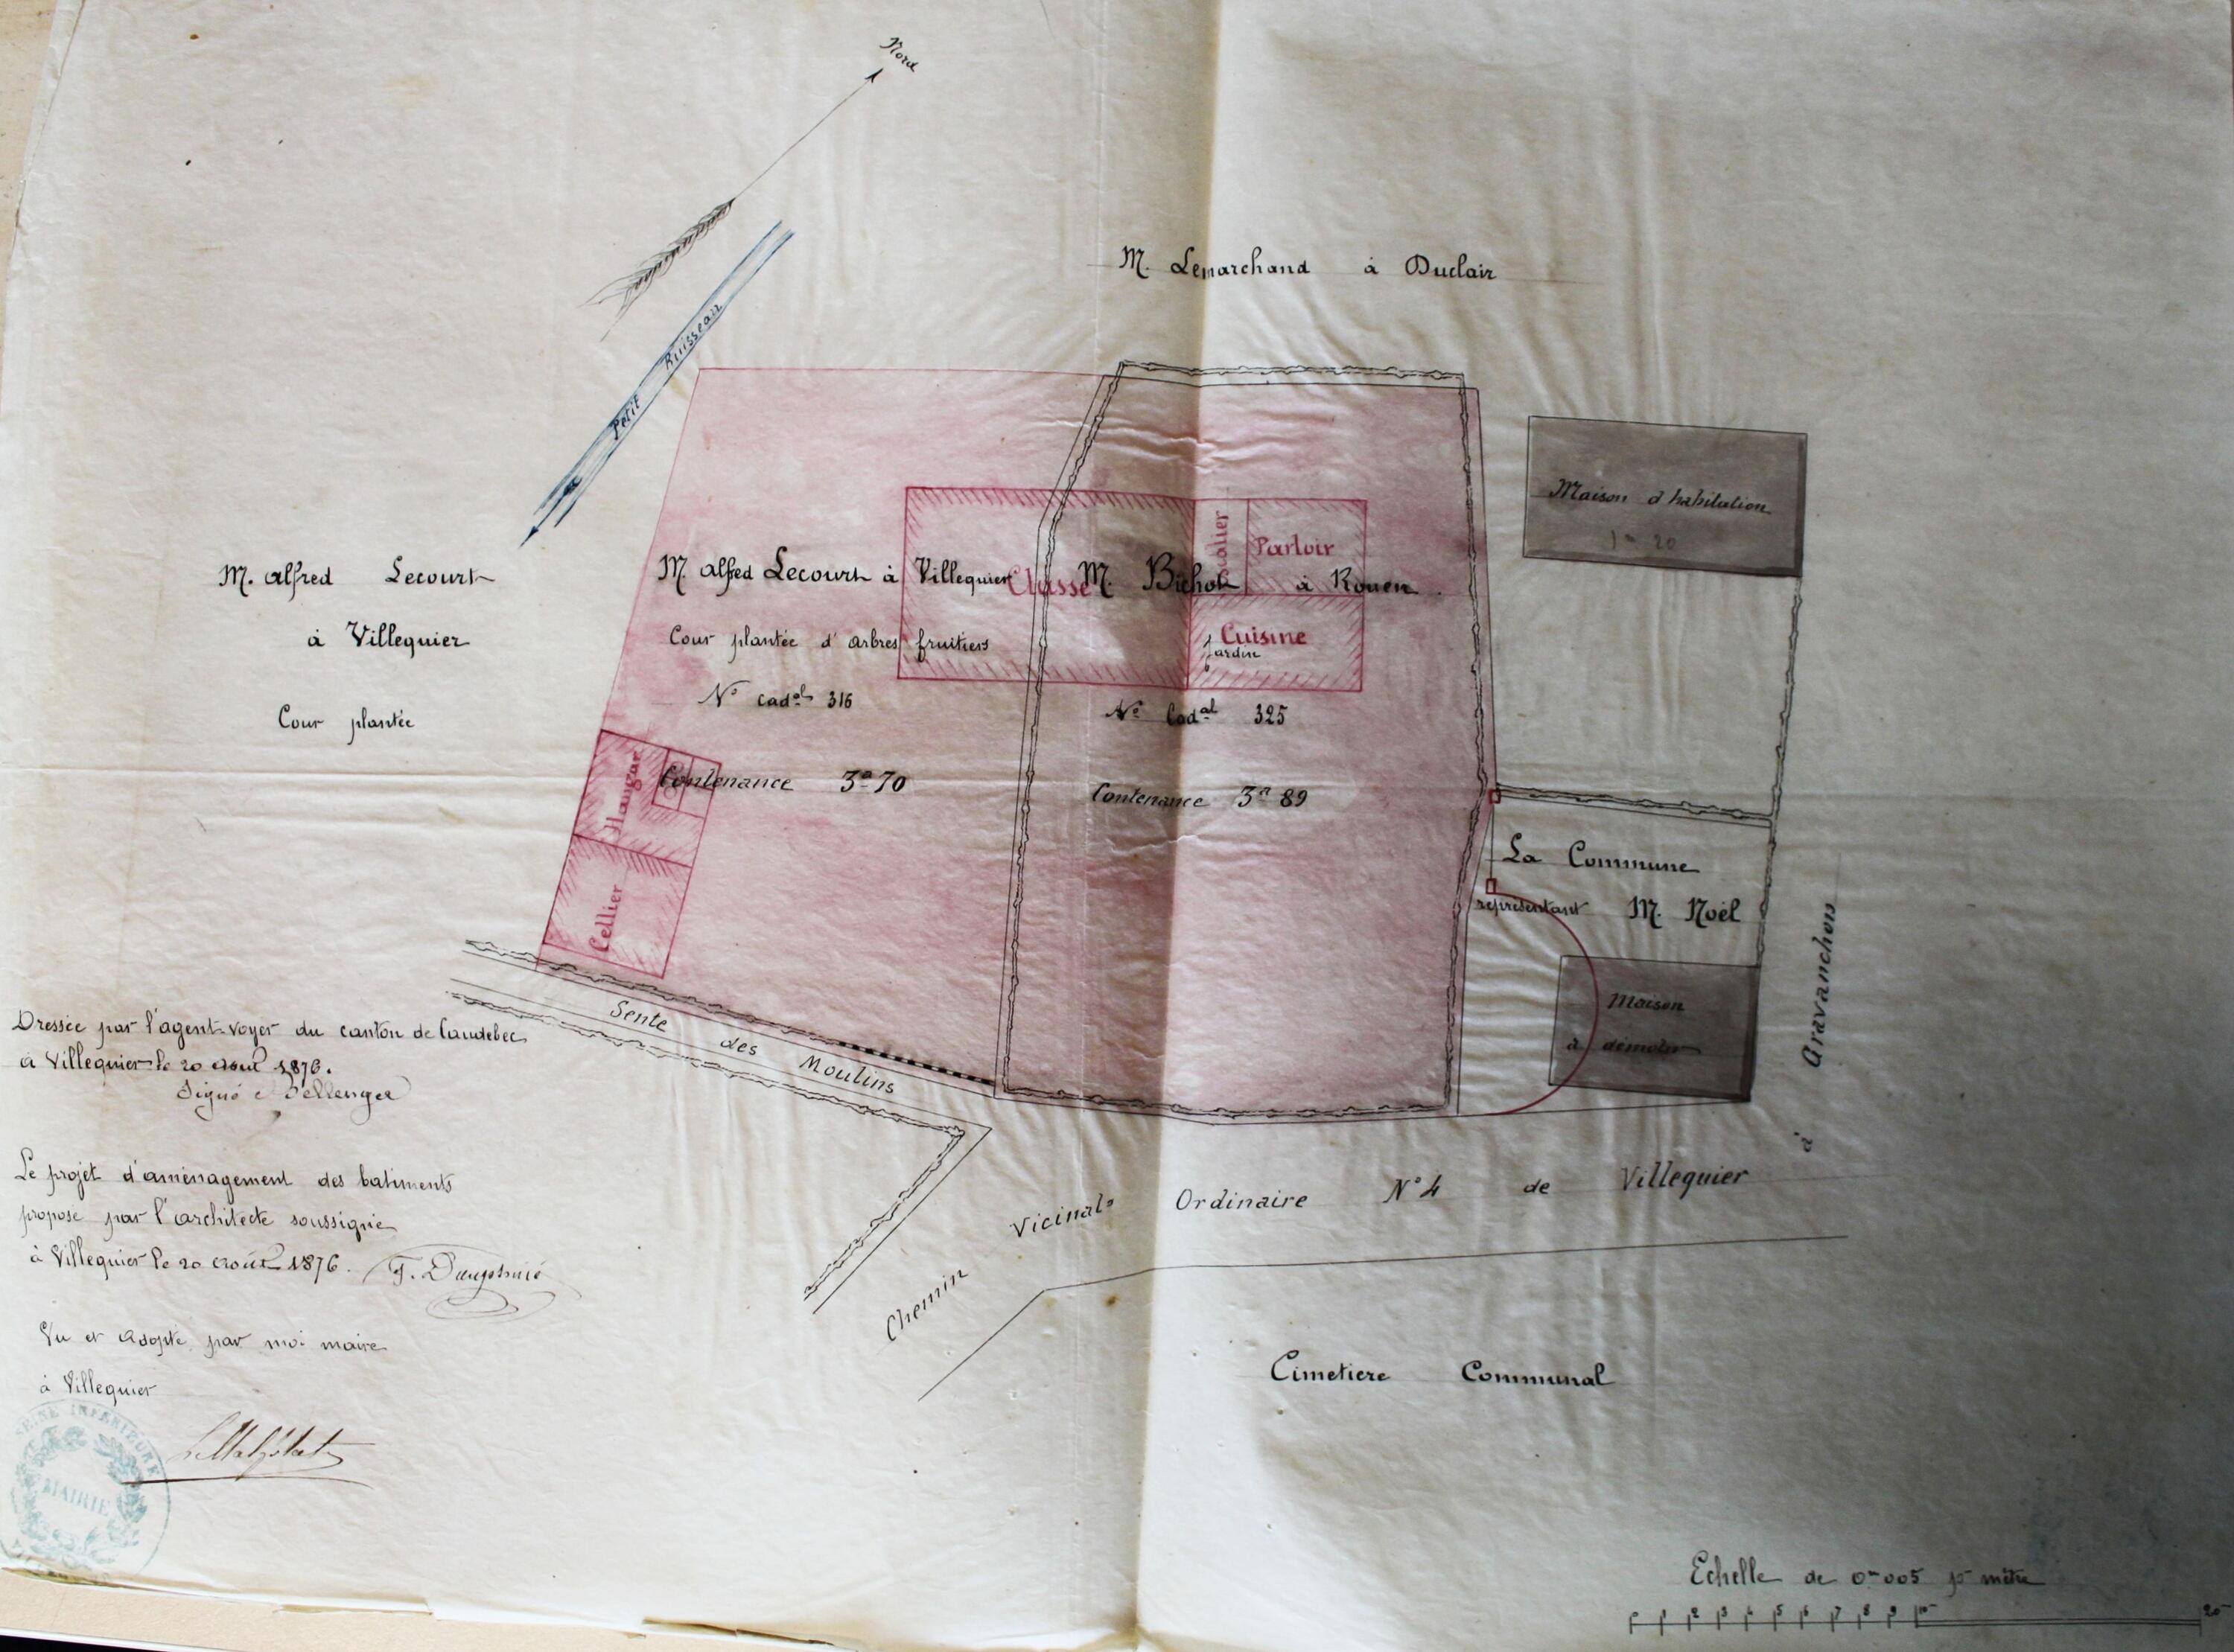 Nord
M. Lemarchand à Duclair
Petit Ruisseau
Maison d'habitation
M. alfred Lecourt
à Villequier
Cour plantée
M. alfred Lecourt à Villequier
Cour plantée d'arbres fruitiers
N° cad.al 316
Contenance 3a 70
Classe
Escalier
Parloir
M. Bichot à Rouen
Cuisine
Jardin
N° Cad.al 325
Contenance 3a 89
Hangar
Cellier
La Commune
représentant M. Noël
Maison
à démolir
Sente des Moulins
Chemin Vicinal Ordinaire N° 4 de Villequier à Gravanchon
Cimetiere Communal
Dressée par l'agent-voyer du canton de Caudebec
à Villequier le 20 Aout 1876.
Signé Pellenger
Le projet d'aménagement des batiments
proposé par l'architecte soussigné
à Villequier le 20 Août 1876.
Vu et adopté par moi maire
à Villequier
SEINE INFERIEURE
MAIRIE
Echelle de 0m005 pr mètre
0 1 2 3 4 5 6 7 8 9 10 20